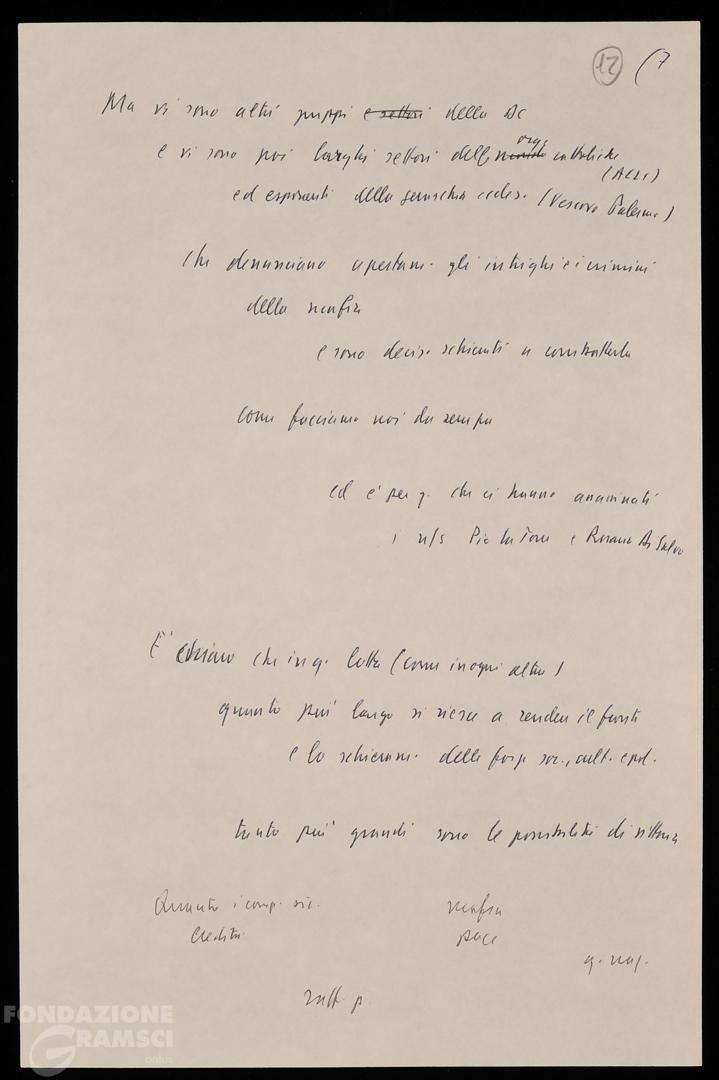 12 (7
Ma vi sono altri gruppi e settori della DC
e vi sono poi larghi settori delle org. cattoliche
(ACLI)
ed esponenti della gerarchia eccles. (Vescovo Palermo)
che denunciano apertam. gli intrighi e i crimini
della mafia
e sono decis. schierati a combatterla
come facciamo noi da sempre
ed è per q. che ci hanno assassinati
i n/s Pio La Torre e Rosario Di Salvo
È chiaro che in q. lotta (come in ogni altra)
quanto più largo si riesce a rendere il fronte
e lo schieram. delle forze soc., cult. e pol.
tanto più grandi sono le possibilità di vittoria
Quanto i comp. sic. mafia
pace
q. naz.
FONDAZIONE
GRAMSCI
onlus